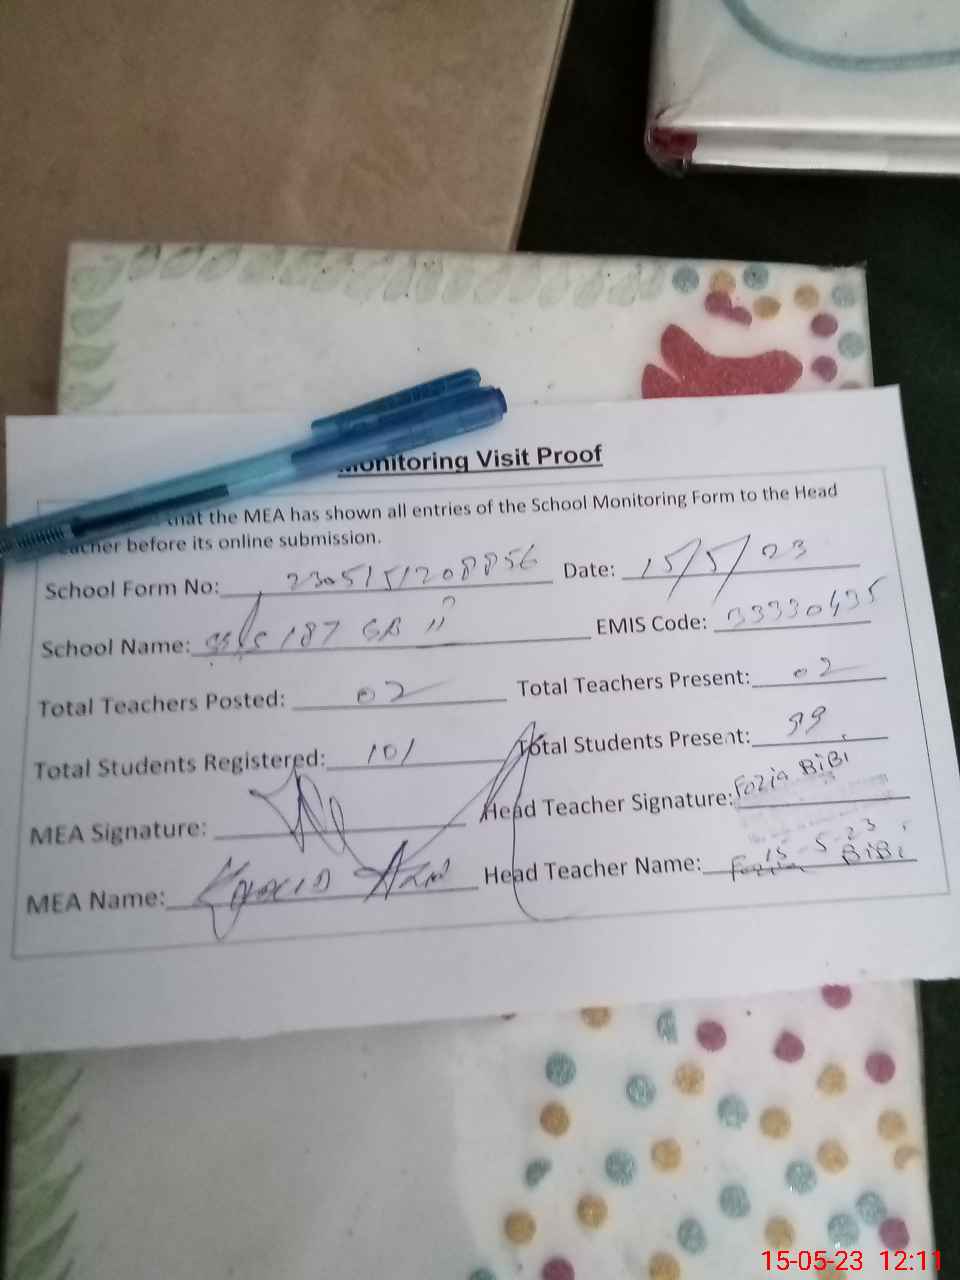 Monitoring Visit Proof
that the MEA has shown all entries of the School Monitoring Form to the Head
Teacher before its online submission.
School Form No: 2305151208856 Date: 15/5/23
School Name: 187 GB ii EMIS Code: 33330435
Total Teachers Posted: 02 Total Teachers Present: 02
Total Students Registered: 101 Total Students Present: 99
MEA Signature: Head Teacher Signature: Fozia BiBi
15-5-23
MEA Name: Head Teacher Name: Fozia BiBi
15-05-23 12:11